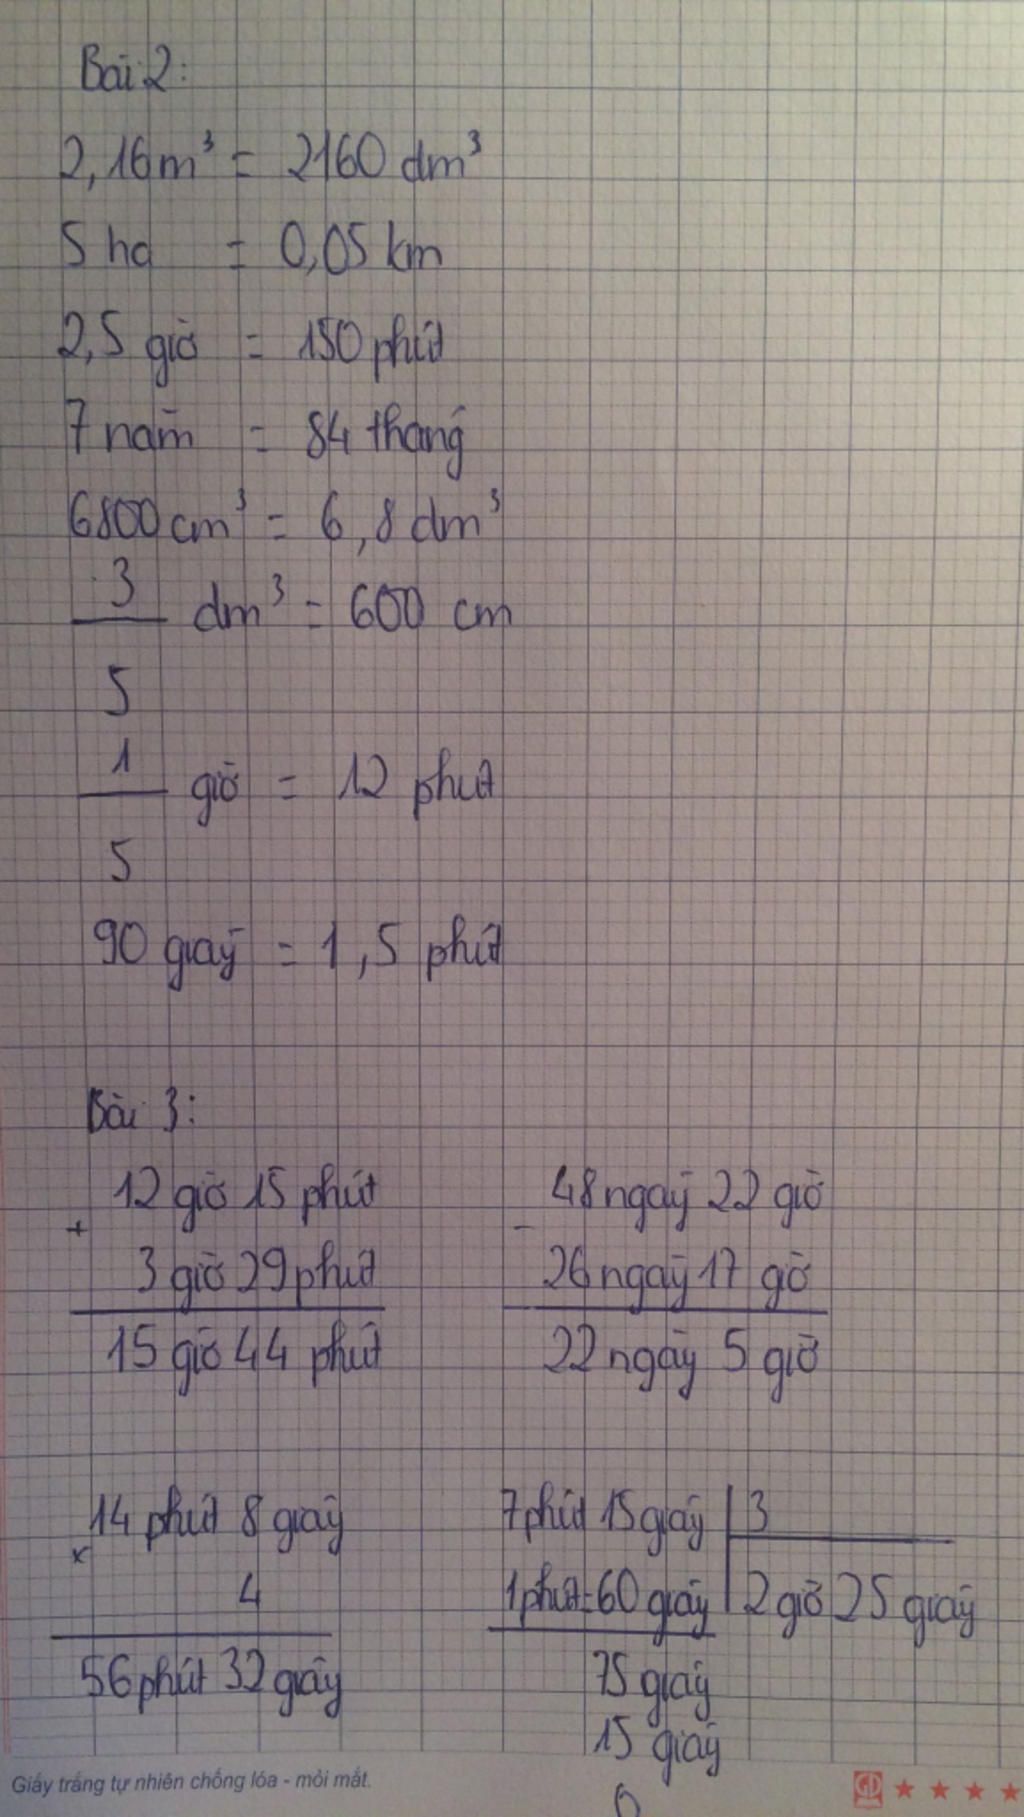 Bài 2:
2,16m³ = 2160 dm³
5 ha = 0,05 km
2,5 giờ = 150 phút
7 năm = 84 tháng
6800 cm³ = 6,8 dm³
3
dm³ = 600 cm
5
1
giờ = 12 phút
5
90 giây = 1,5 phút
Bài 3:
12 giờ 15 phút
+
3 giờ 29 phút
15 giờ 44 phút
48 ngày 22 giờ
-
26 ngày 17 gờ
22 ngày 5 giờ
14 phút 8 giây
x
4
56 phút 32 giây
7 phút 15 giây 3
1 phút = 60 giây 2 giờ 25 giây
75 giây
15 giây
0
Giấy trắng tự nhiên chống lóa - mỏi mắt.
GD ★ ★ ★ ★